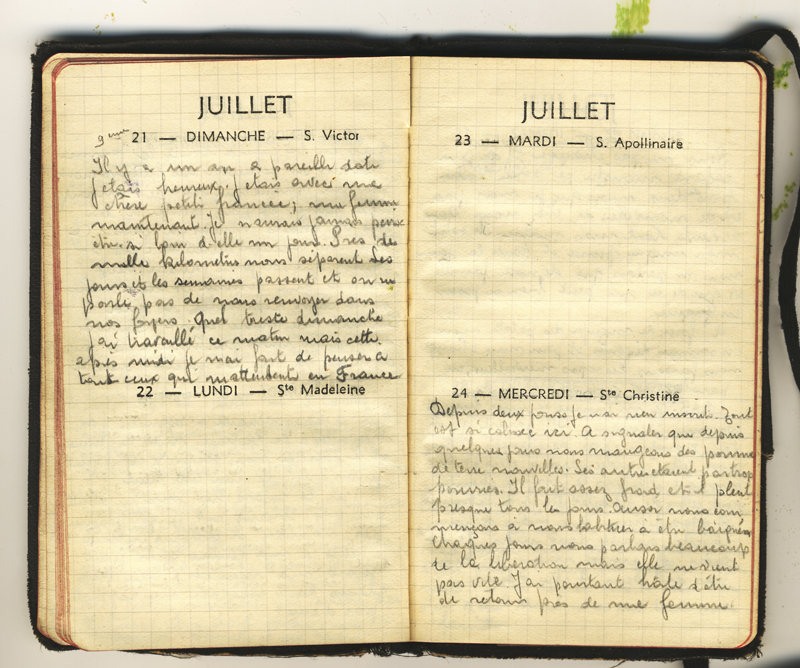 JUILLET
9ème 21 — DIMANCHE — S. Victor
Il y a un an a pareille date
j'etais heureux, j'etais avec ma
chère petite fiancée, ma femme
maintenant. Je n'aurais jamais pensé
être si loin d'elle un jour. Près de
mille kilomètres nous séparent. Les
jours et les semaines passent et on ne
parle pas de nous renvoyer dans
nos foyers. Quel triste dimanche
j'ai travaillé ce matin mais cette
après midi je n'ai fait de penser a
tout ceux qui m'attendent en France
22 — LUNDI — Ste Madeleine
JUILLET
23 — MARDI — S. Apollinaire
24 — MERCREDI — Ste Christine
Depuis deux jours je n'ai rien inscrit. Tout
est si calme ici. A signaler que depuis
quelques jours nous mangeons des pommes
de terre nouvelles. Les autres étaient par trop
pourries. Il fait assez froid et il pleut
presque tous les jours. Aussi nous com
mençons a nous habituer à être baignés
Chaques jours nous parlons beaucoup
de la libération mais elle ne vient
pas vite. J'ai pourtant hâte d'être
de retour près de ma femme.